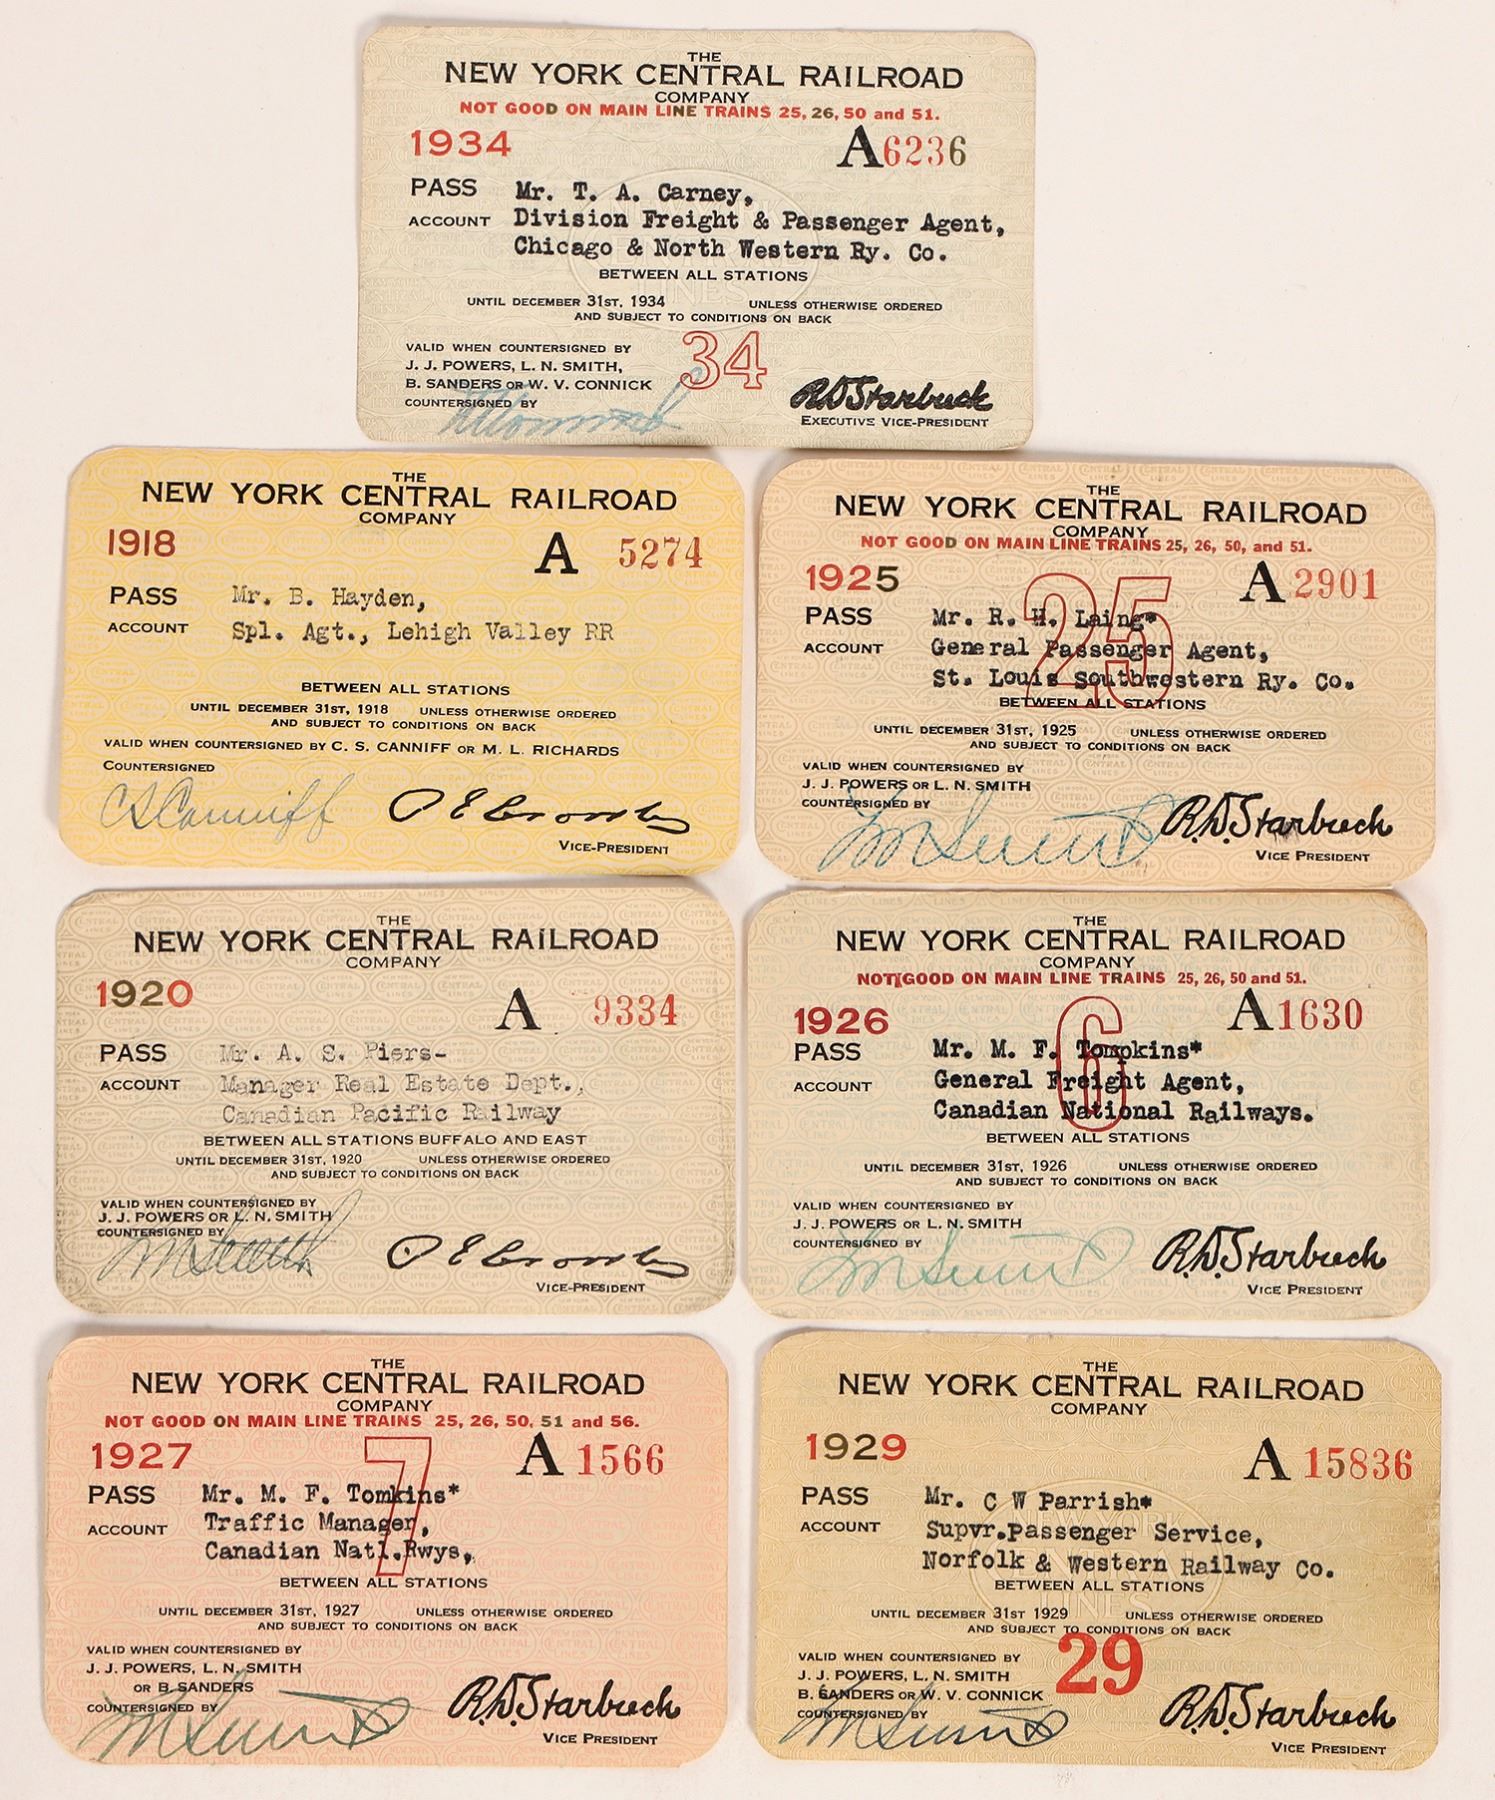 THE
NEW YORK CENTRAL RAILROAD
COMPANY
NOT GOOD ON MAIN LINE TRAINS 25, 26, 50 and 51.
1934 A6236
PASS Mr. T. A. Carney,
ACCOUNT Division Freight & Passenger Agent,
Chicago & North Western Ry. Co.
BETWEEN ALL STATIONS
UNTIL DECEMBER 31ST, 1934 UNLESS OTHERWISE ORDERED
AND SUBJECT TO CONDITIONS ON BACK
34
VALID WHEN COUNTERSIGNED BY
J. J. POWERS, L. N. SMITH,
B. SANDERS OR W. V. CONNICK
COUNTERSIGNED BY
R.D. Starbuck
EXECUTIVE VICE-PRESIDENT
THE
NEW YORK CENTRAL RAILROAD
COMPANY
1918 A 5274
PASS Mr. B. Hayden,
ACCOUNT Spl. Agt., Lehigh Valley RR
BETWEEN ALL STATIONS
UNTIL DECEMBER 31ST, 1918 UNLESS OTHERWISE ORDERED
AND SUBJECT TO CONDITIONS ON BACK
VALID WHEN COUNTERSIGNED BY C. S. CANNIFF OR M. L. RICHARDS
COUNTERSIGNED
C S Canniff P E Crowley
VICE-PRESIDENT
THE
NEW YORK CENTRAL RAILROAD
COMPANY
NOT GOOD ON MAIN LINE TRAINS 25, 26, 50, and 51.
1925 A 2901
25
PASS Mr. R. H. Laing*
ACCOUNT General Passenger Agent,
St. Louis Southwestern Ry. Co.
BETWEEN ALL STATIONS
UNTIL DECEMBER 31ST, 1925 UNLESS OTHERWISE ORDERED
AND SUBJECT TO CONDITIONS ON BACK
VALID WHEN COUNTERSIGNED BY
J. J. POWERS OR L. N. SMITH
COUNTERSIGNED BY
L N Smith R.D. Starbuck
VICE PRESIDENT
THE
NEW YORK CENTRAL RAILROAD
COMPANY
1920 A 9334
PASS Mr. A. S. Piers-
ACCOUNT Manager Real Estate Dept.,
Canadian Pacific Railway
BETWEEN ALL STATIONS BUFFALO AND EAST
UNTIL DECEMBER 31ST, 1920 UNLESS OTHERWISE ORDERED
AND SUBJECT TO CONDITIONS ON BACK
VALID WHEN COUNTERSIGNED BY
J. J. POWERS OR L. N. SMITH
COUNTERSIGNED BY
L N Smith P E Crowley
VICE-PRESIDENT
THE
NEW YORK CENTRAL RAILROAD
COMPANY
NOT GOOD ON MAIN LINE TRAINS 25, 26, 50 and 51.
1926 A1630
6
PASS Mr. M. F. Tompkins*
ACCOUNT General Freight Agent,
Canadian National Railways.
BETWEEN ALL STATIONS
UNTIL DECEMBER 31ST, 1926 UNLESS OTHERWISE ORDERED
AND SUBJECT TO CONDITIONS ON BACK
VALID WHEN COUNTERSIGNED BY
J. J. POWERS OR L. N. SMITH
COUNTERSIGNED BY
L N Smith R.D. Starbuck
VICE PRESIDENT
THE
NEW YORK CENTRAL RAILROAD
COMPANY
NOT GOOD ON MAIN LINE TRAINS 25, 26, 50, 51 and 56.
1927 A 1566
7
PASS Mr. M. F. Tomkins*
ACCOUNT Traffic Manager,
Canadian Natl.Rwys,
BETWEEN ALL STATIONS
UNTIL DECEMBER 31ST, 1927 UNLESS OTHERWISE ORDERED
AND SUBJECT TO CONDITIONS ON BACK
VALID WHEN COUNTERSIGNED BY
J. J. POWERS, L. N. SMITH
OR B. SANDERS
COUNTERSIGNED BY
L N Smith R.D. Starbuck
VICE PRESIDENT
THE
NEW YORK CENTRAL RAILROAD
COMPANY
1929 A 15836
PASS Mr. C W Parrish*
ACCOUNT Supvr.Passenger Service,
Norfolk & Western Railway Co.
BETWEEN ALL STATIONS
UNTIL DECEMBER 31ST 1929 UNLESS OTHERWISE ORDERED
AND SUBJECT TO CONDITIONS ON BACK
29
VALID WHEN COUNTERSIGNED BY
J. J. POWERS, L. N. SMITH
B. SANDERS OR W. V. CONNICK
COUNTERSIGNED BY
L N Smith R.D. Starbuck
VICE PRESIDENT